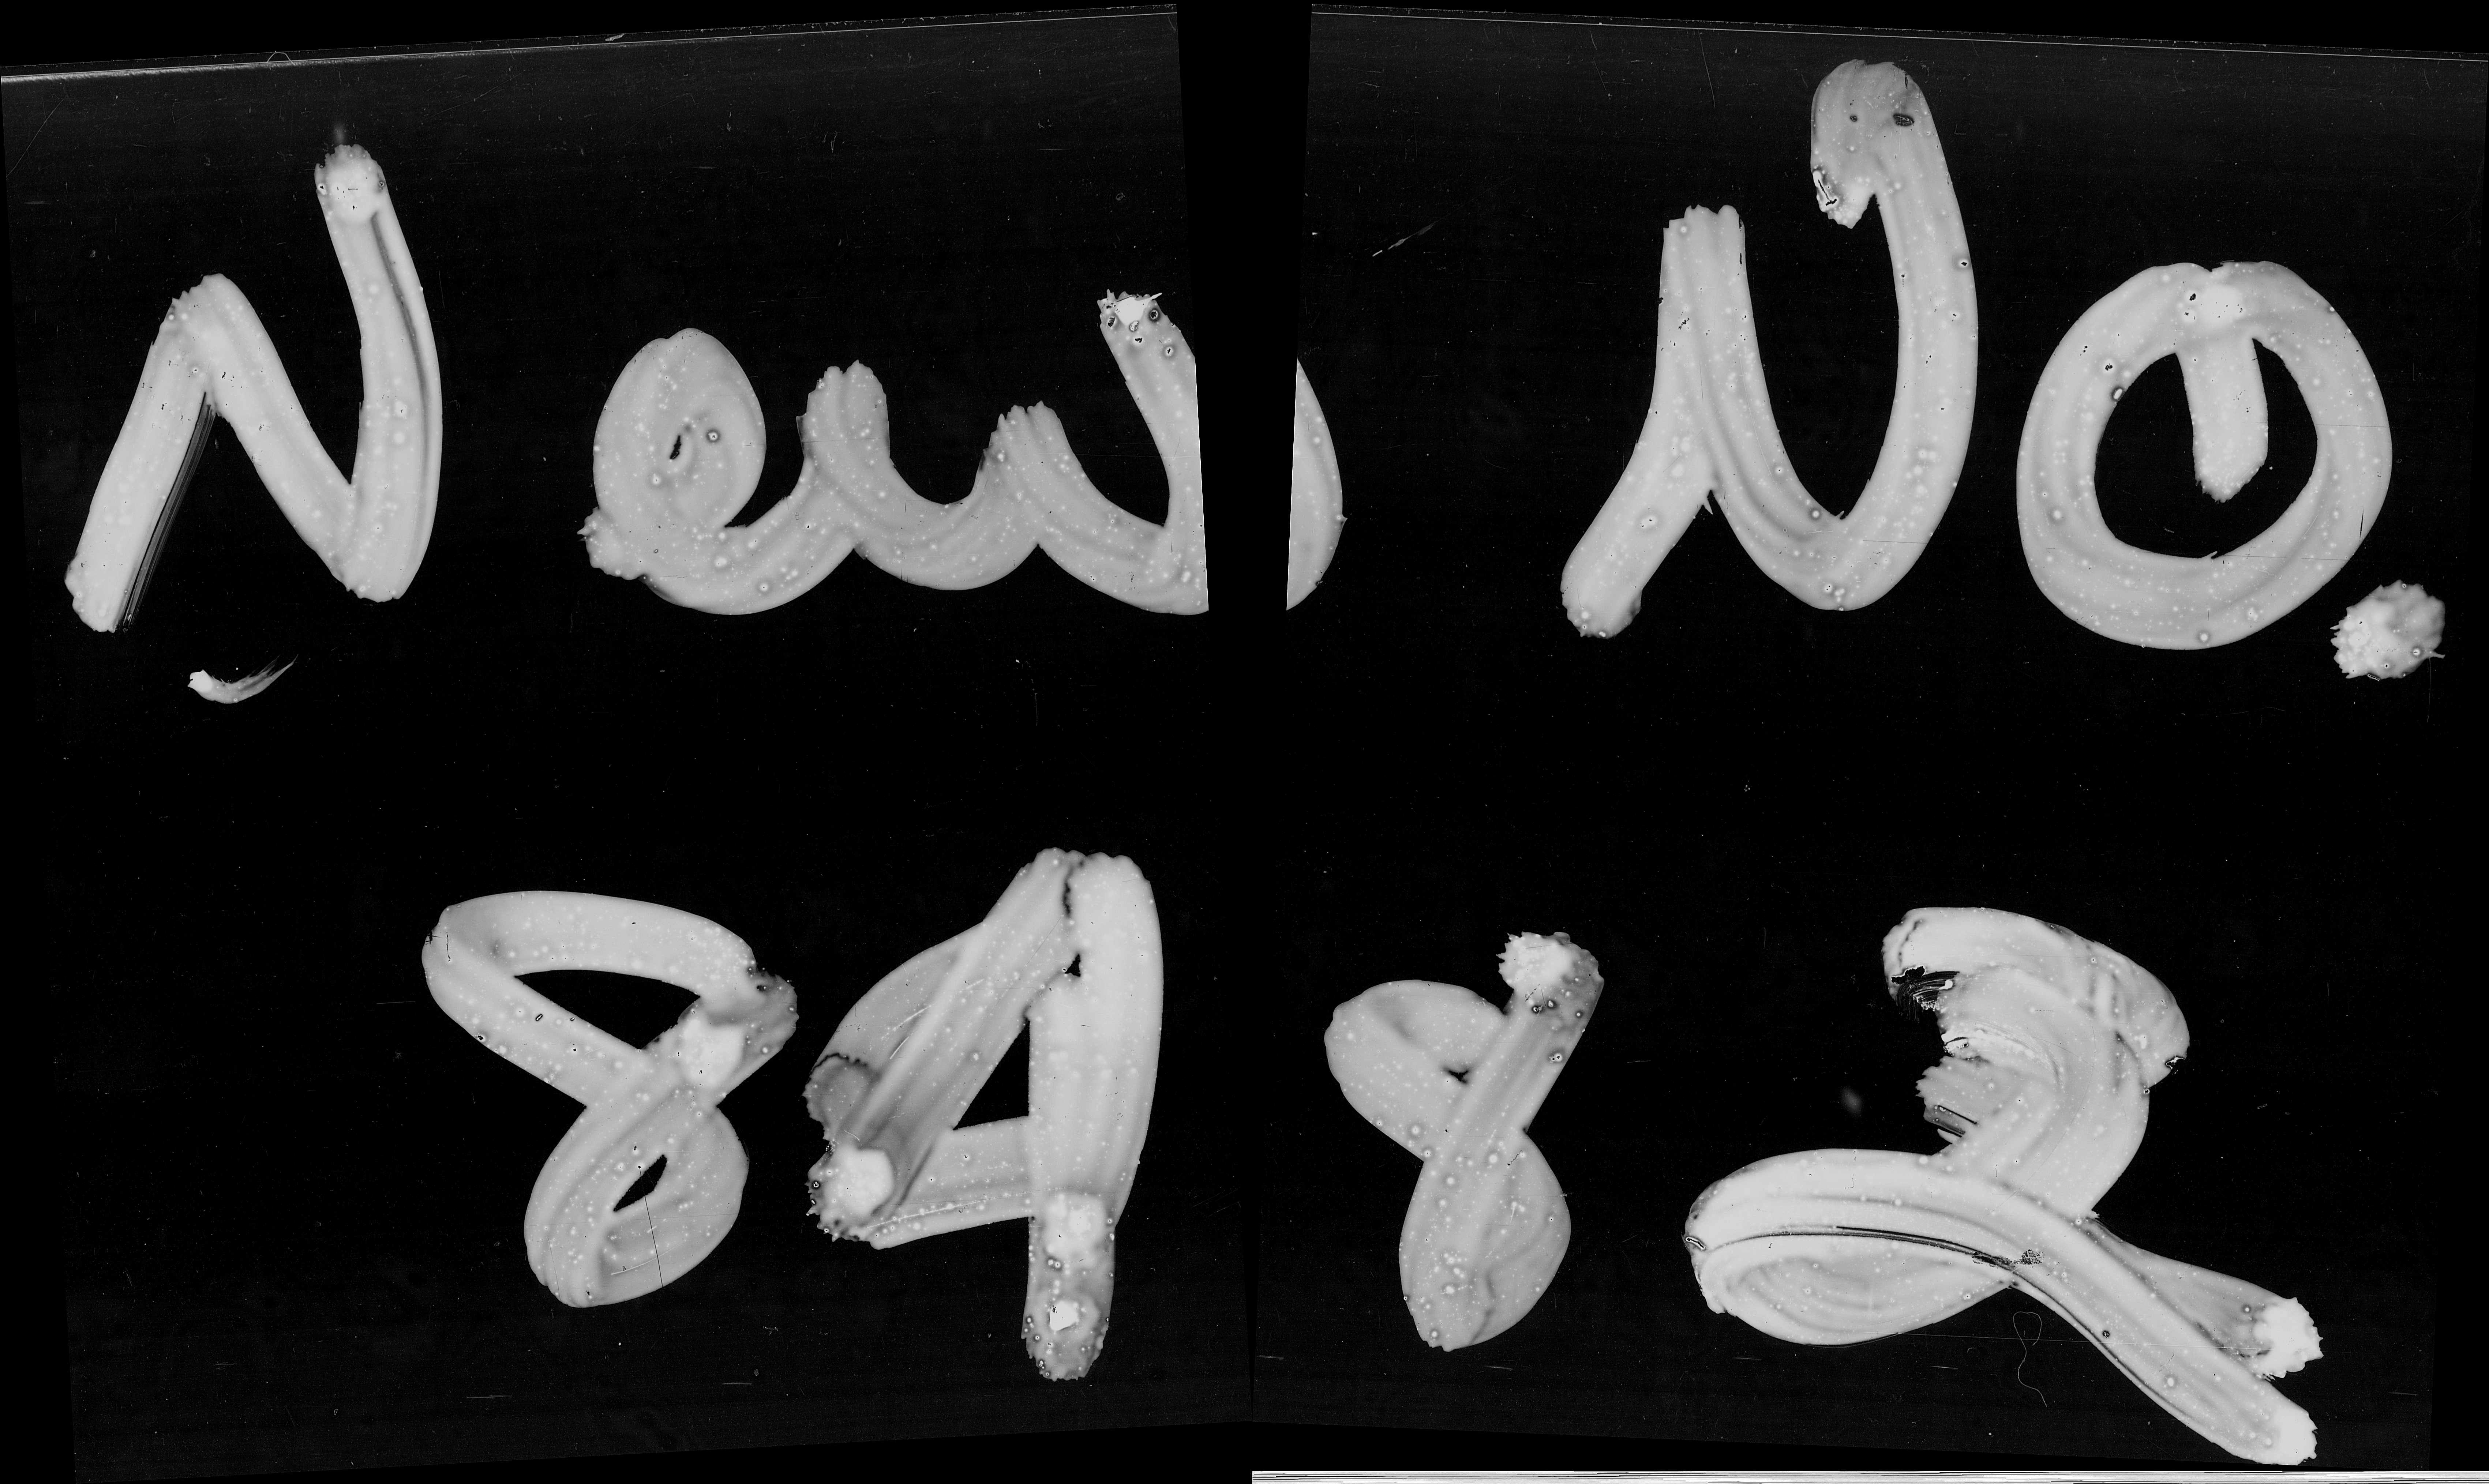 New No.
8482